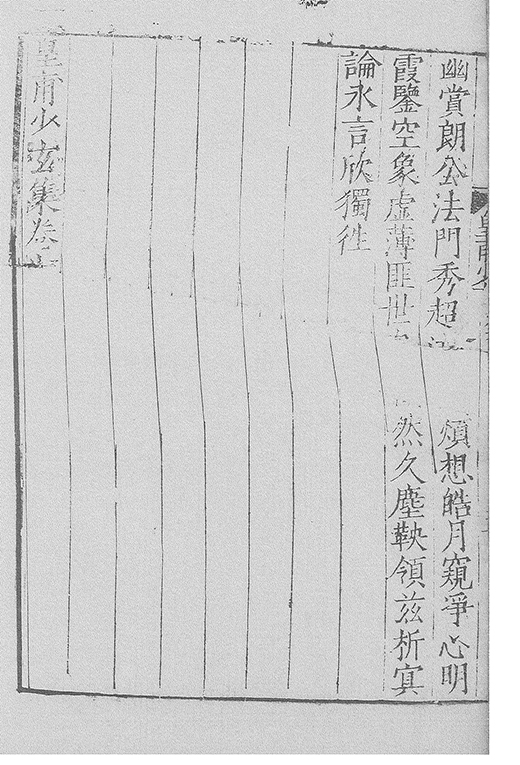 幽賞朗公法門秀超煩想皓月窺淨心明
霞鑒空象虛薄匪世然久塵鞅領茲析寘
論永言欣獨徃
皇甫少玄集卷